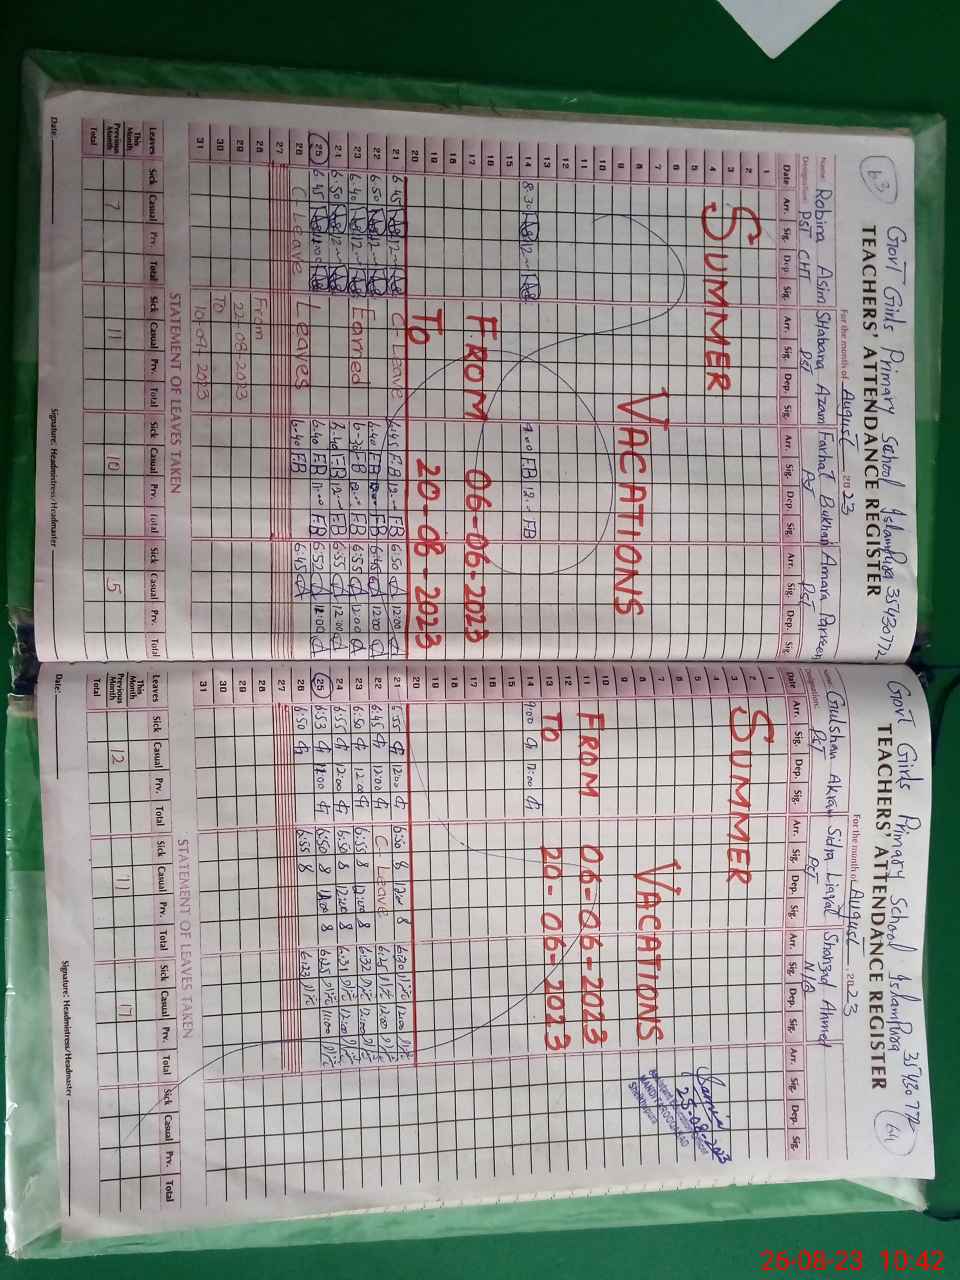 63
Govt Girls Primary School Islampura 35430772
TEACHERS' ATTENDANCE REGISTER
For the month of August 2023
Name Robina Asim Shabana Azam Farhat Bukhari Amara Parveen
Designation: PST CHT PST PST
Date Arr. Sig. Dep. Sig. Arr. Sig. Dep. Sig. Arr. Sig. Dep. Sig. Arr. Sig. Dep. Sig.
1
2
3
4
5
6
7
8
9
10
11
12
13
14 8.30 12 FB 12 FB
16
17
18
19
20
SUMMER
VACATIONS
FROM 06-06-2023
TO 20-08-2023
21 6.45 12 C-Leave 6.45 FB 12 FB 6:50 12:00
22 6.50 12 Earned 6.40 FB 12 FB 6:45 12:00
23 6.40 12 FB 12 FB 6:55 12:00
24 6.50 12 FB 12 FB 6:55 12:00
25 6.45 12.00 6.40 FB FB 6:52 12:00
26 C-Leave Leaves 6.40 FB 6:45
27
28 From
29 22-08-2023
30 To
31 10-09-2023
STATEMENT OF LEAVES TAKEN
Leaves Sick Casual Prv. Total Sick Casual Prv. Total Sick Casual Prv. Total Sick Casual Prv. Total
This Month
Previous Month 7 11 10 5
Total
Date: Signature: Headmistress/Headmaster
64
Govt Girls Primary School Islampura 35430772
TEACHERS' ATTENDANCE REGISTER
For the month of August 2023
Name: Gulshan Akram Sidra Liaqat Shahzad Ahmed
Designation: PST PST N/Q
Date Arr. Sig. Dep. Sig. Arr. Sig. Dep. Sig. Arr. Sig. Dep. Sig. Arr. Sig. Dep. Sig.
1
2
3
4
5
6
7
8
9
10
11
12
13
14 9:00 12:00
16
17
18
19
20
SUMMER
VACATIONS
FROM 06-06-2023
TO 20-06-2023
25-08-2023
21 6:55 12:00 6:50 12:00 6:30 12:00
22 6:45 12:00 C-Leave 12:00
23 6:50 12:00 6:55 12:00 6:32 12:00
24 6:55 12:00 6:50 12:00 6:31 12:00
25 6:53 12:00 6:50 12:00 6:25 11:00
26 6:50 6:55 6:23
27
28
29
30
31
STATEMENT OF LEAVES TAKEN
Leaves Sick Casual Prv. Total Sick Casual Prv. Total Sick Casual Prv. Total Sick Casual Prv. Total
This Month
Previous Month 12 11 17
Total
Date: Signature: Headmistress/Headmaster
26-08-23 10:42